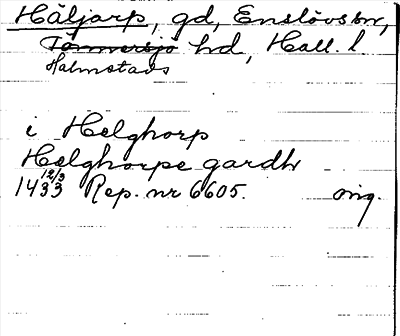 Häljarp, gd, Enslövs sn,
Tönnersjö hd, Hall. l
Halmstads
i Helghorp
Helghorpe gardh
1433 12/3 Rep. nr 6605. orig.